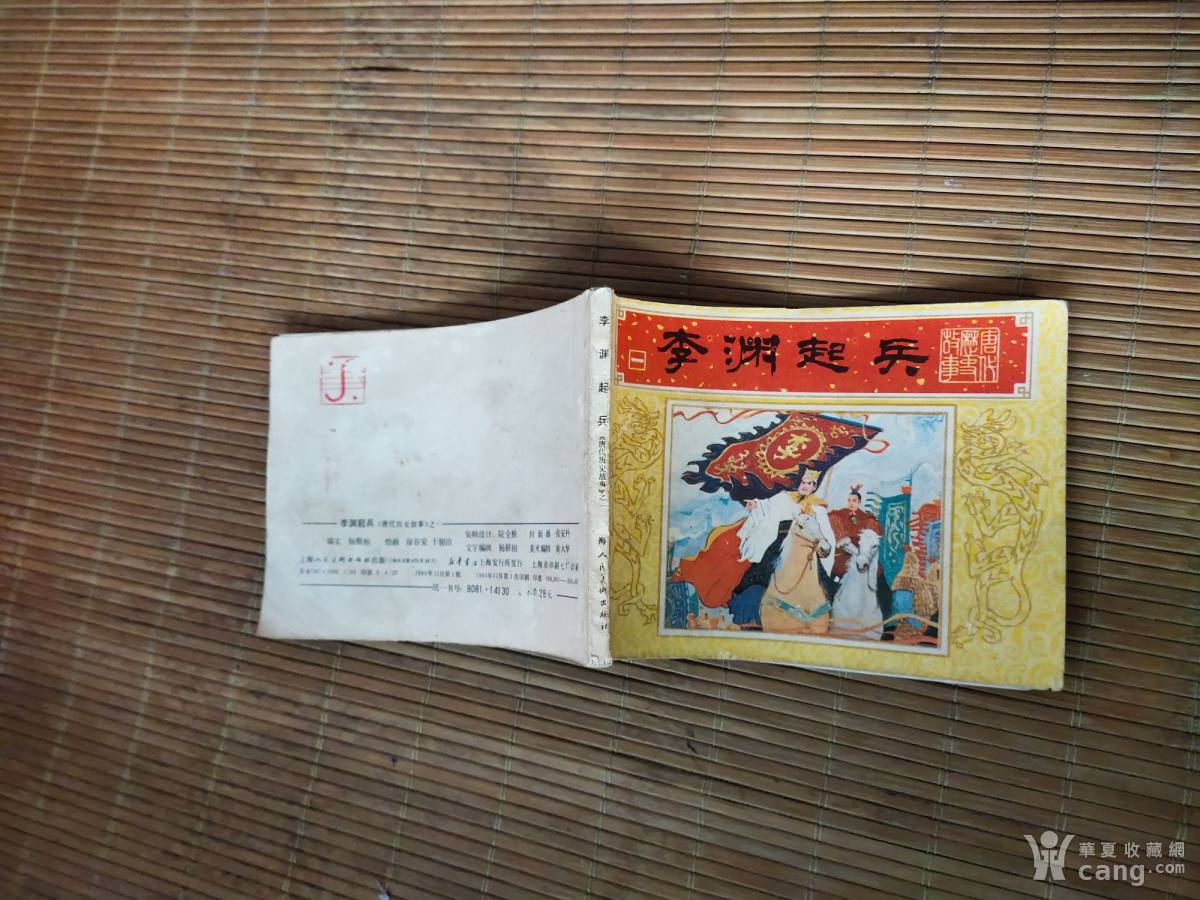 一 李渊起兵
唐代
历史
故事
李
李渊起兵《唐代历史故事》之一
海人民美术出版社
李渊起兵《唐代历史故事》之一
编文 杨根相 绘画 徐谷安
装帧设计 阮全根 封面画 张安朴
文字编辑 杨根相 美术编辑 黄大华
上海人民美术出版社出版
新华书店上海发行所发行
1984年11月第1版 1984年11月第1次印刷
统一书号：8081·14130
0.26元
華夏收藏網
cang.com